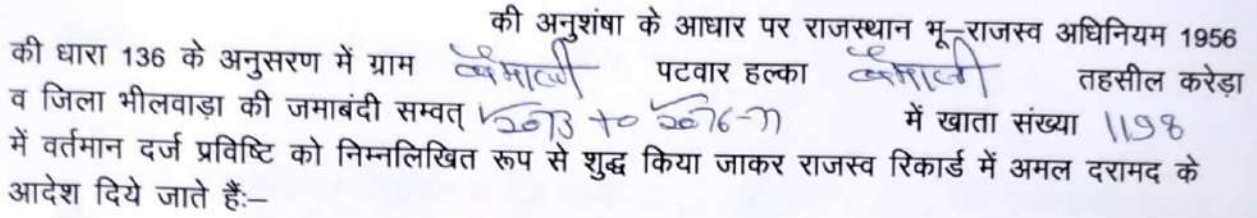 की अनुशंषा के आधार पर राजस्थान भू–राजस्व अधिनियम 1956
की धारा 136 के अनुसरण में ग्राम पटवार हल्का तहसील करेड़ा
व जिला भीलवाड़ा की जमाबंदी सम्वत् 2073 to 2076-77 में खाता संख्या 1198
में वर्तमान दर्ज प्रविष्टि को निम्नलिखित रूप से शुद्ध किया जाकर राजस्व रिकार्ड में अमल दरामद के
आदेश दिये जाते हैंः–